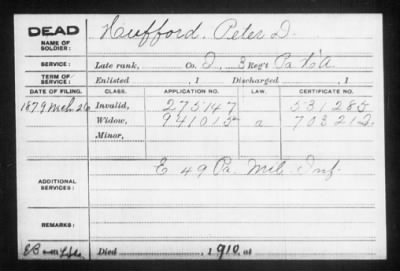 DEAD
NAME OF SOLDIER:
Hufford, Peter D.
SERVICE:
Late rank, Co. D, 3 Reg't Pa H A
TERM OF SERVICE:
Enlisted , 1 Discharged , 1
DATE OF FILING. CLASS. APPLICATION NO. LAW. CERTIFICATE NO.
1879 Mch 26 Invalid, 275147 531285
Widow, 941015 a 703212
Minor,
ADDITIONAL SERVICES:
E 49 Pa. Mil. Inf.
REMARKS:
Died , 1910, at